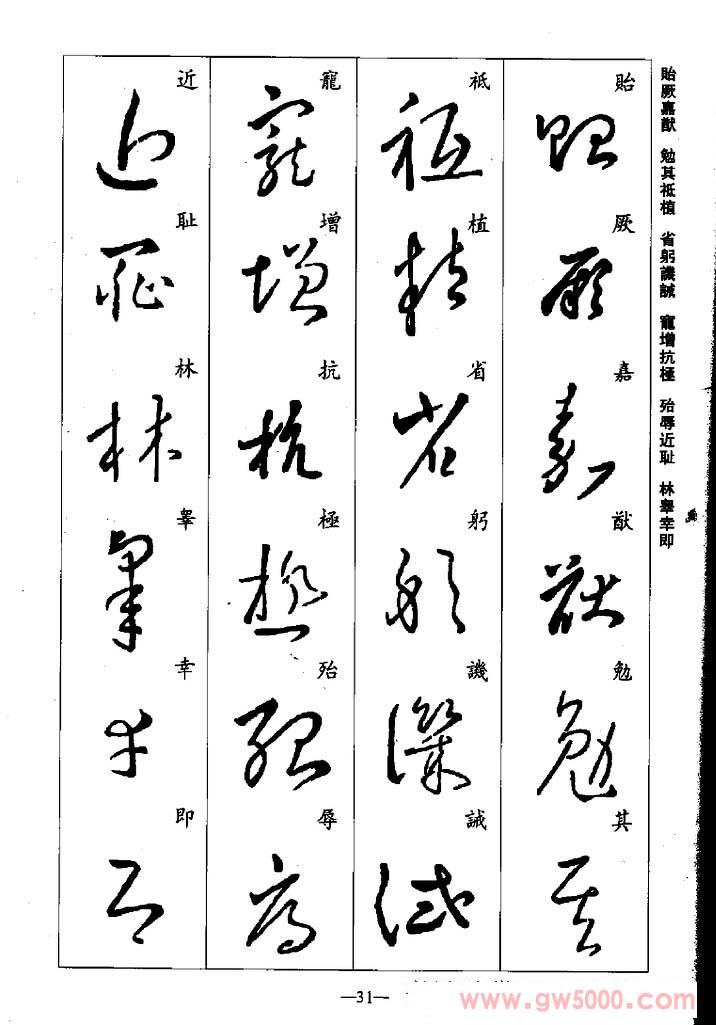 貽厥嘉猷 勉其祗植 省躬譏誡 寵增抗極 殆辱近耻 林睾幸即
貽厥嘉猷勉其
祗植省躬譏誡
寵增抗極殆辱
近耻林睾幸即
—31—
www.gw5000.com